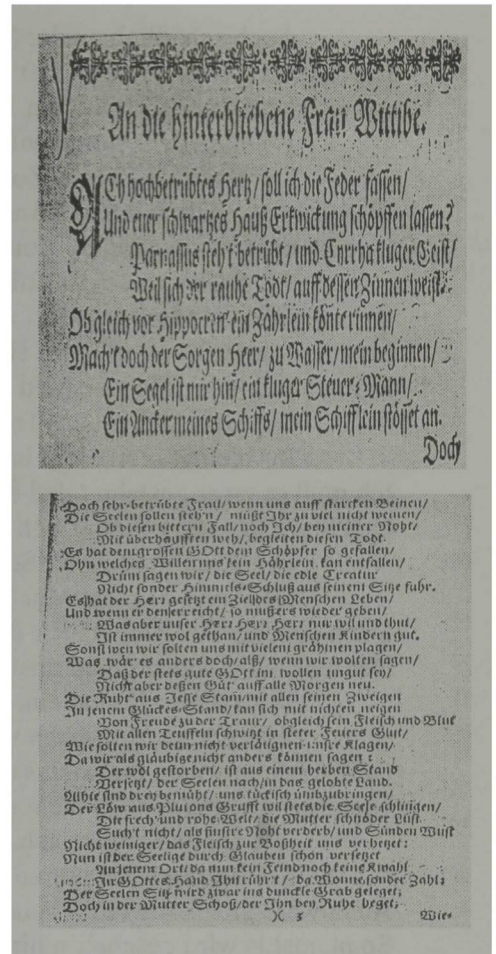 An die hinterbliebene Frau Wittibe.
ACh hochbetrübtes Hertz/ soll ich die Feder fassen/
Und euer schwartzes Hauß Erkwickung schöpffen lassen?
Parnassus steh't betrübt/ und Cyrrha kluger Geist/
Weil sich der rauhe Todt/ auff dessen Zinnen weist.
Ob gleich vor Hippocren' ein Zährlein könte rinnen/
Mach't doch der Sorgen Heer/ zu Wasser/ mein beginnen/
Ein Segel ist mir hin/ ein kluger Steuer-Mann/
Ein Ancker meines Schiffs/ mein Schifflein stösset an.
Doch
Doch sehr-betrübte Frau/ wenn uns auff starcken Beinen/
Die Seelen sollen steh'n/ müßt Ihr zu viel nicht weinen/
Ob diesen bittern Fall/ noch Ich/ bey meiner Noht/
Mit überhäufften weh/ begleiten diesen Todt.
Es hat dem grossen GOtt dem Schöpfer so gefallen/
Ohn welches Willen uns kein Höhrlein kan entfallen/
Drüm sagen wir/ die Seel/ die edle Creatur
Nicht sonder Himmels-Schluß aus seinem Sitze fuhr.
Es hat der Herr gesetzt ein Ziel des Menschen Leben/
Und wenn er den erreicht/ so muß ers wieder geben/
Was aber unser Herr Herr Herr nur wil und thut/
Ist immer wol gethan/ und Menschen Kindern gut.
Sonst wen wir solten uns mit vielem grähmen plagen/
Was wär' es anders doch/ alß/ wenn wir wolten sagen/
Daß der stets gute GOtt im wollen ungut sey/
Nicht aber deßen Güt' auff alle Morgen neu.
Die Ruht' aus Jesse Stam/ mit allen seinen Zweigen
In jenem Glückes-Stand/ kan sich mit nichten neigen
Von Freude zu der Traur/ obgleich sein Fleisch und Blut
Mit allen Teuffeln schwitzt in steter Feuers Glut/
Wie solten wir denn nicht verläugnen unsre Klagen/
Da wir als gläubige nicht anders können sagen:
Der wol gestorben/ ist aus einem herben Stand
Versetzt/ der Seelen nach/ in das gelobte Land.
Alhie sind drey bemüht/ uns tückisch ümbzubringen/
Der Löw aus Plutons Grufft wil stets die Seele schlingen/
Die frech und rohe Welt/ die Mutter schnöder Lüst
Such't nicht/ als finstre Noht verderb/ und Sünden Wust
Nicht weniger/ das Fleisch zur Boßheit uns verhetzet:
Nun ist der Seelige durch Glauben schon versetzet
An jenem Ort/ da nun kein Feind noch keine Kwahl
In GOttes Hand Ihn rühr't/ da Wonne sonder Zahl:
Der Seelen Sitz wird zwar ins dunckle Grab geleget;
Doch in der Mutter Schoß/ der Ihn bey Ruhe heget;
)( 3 Wie-